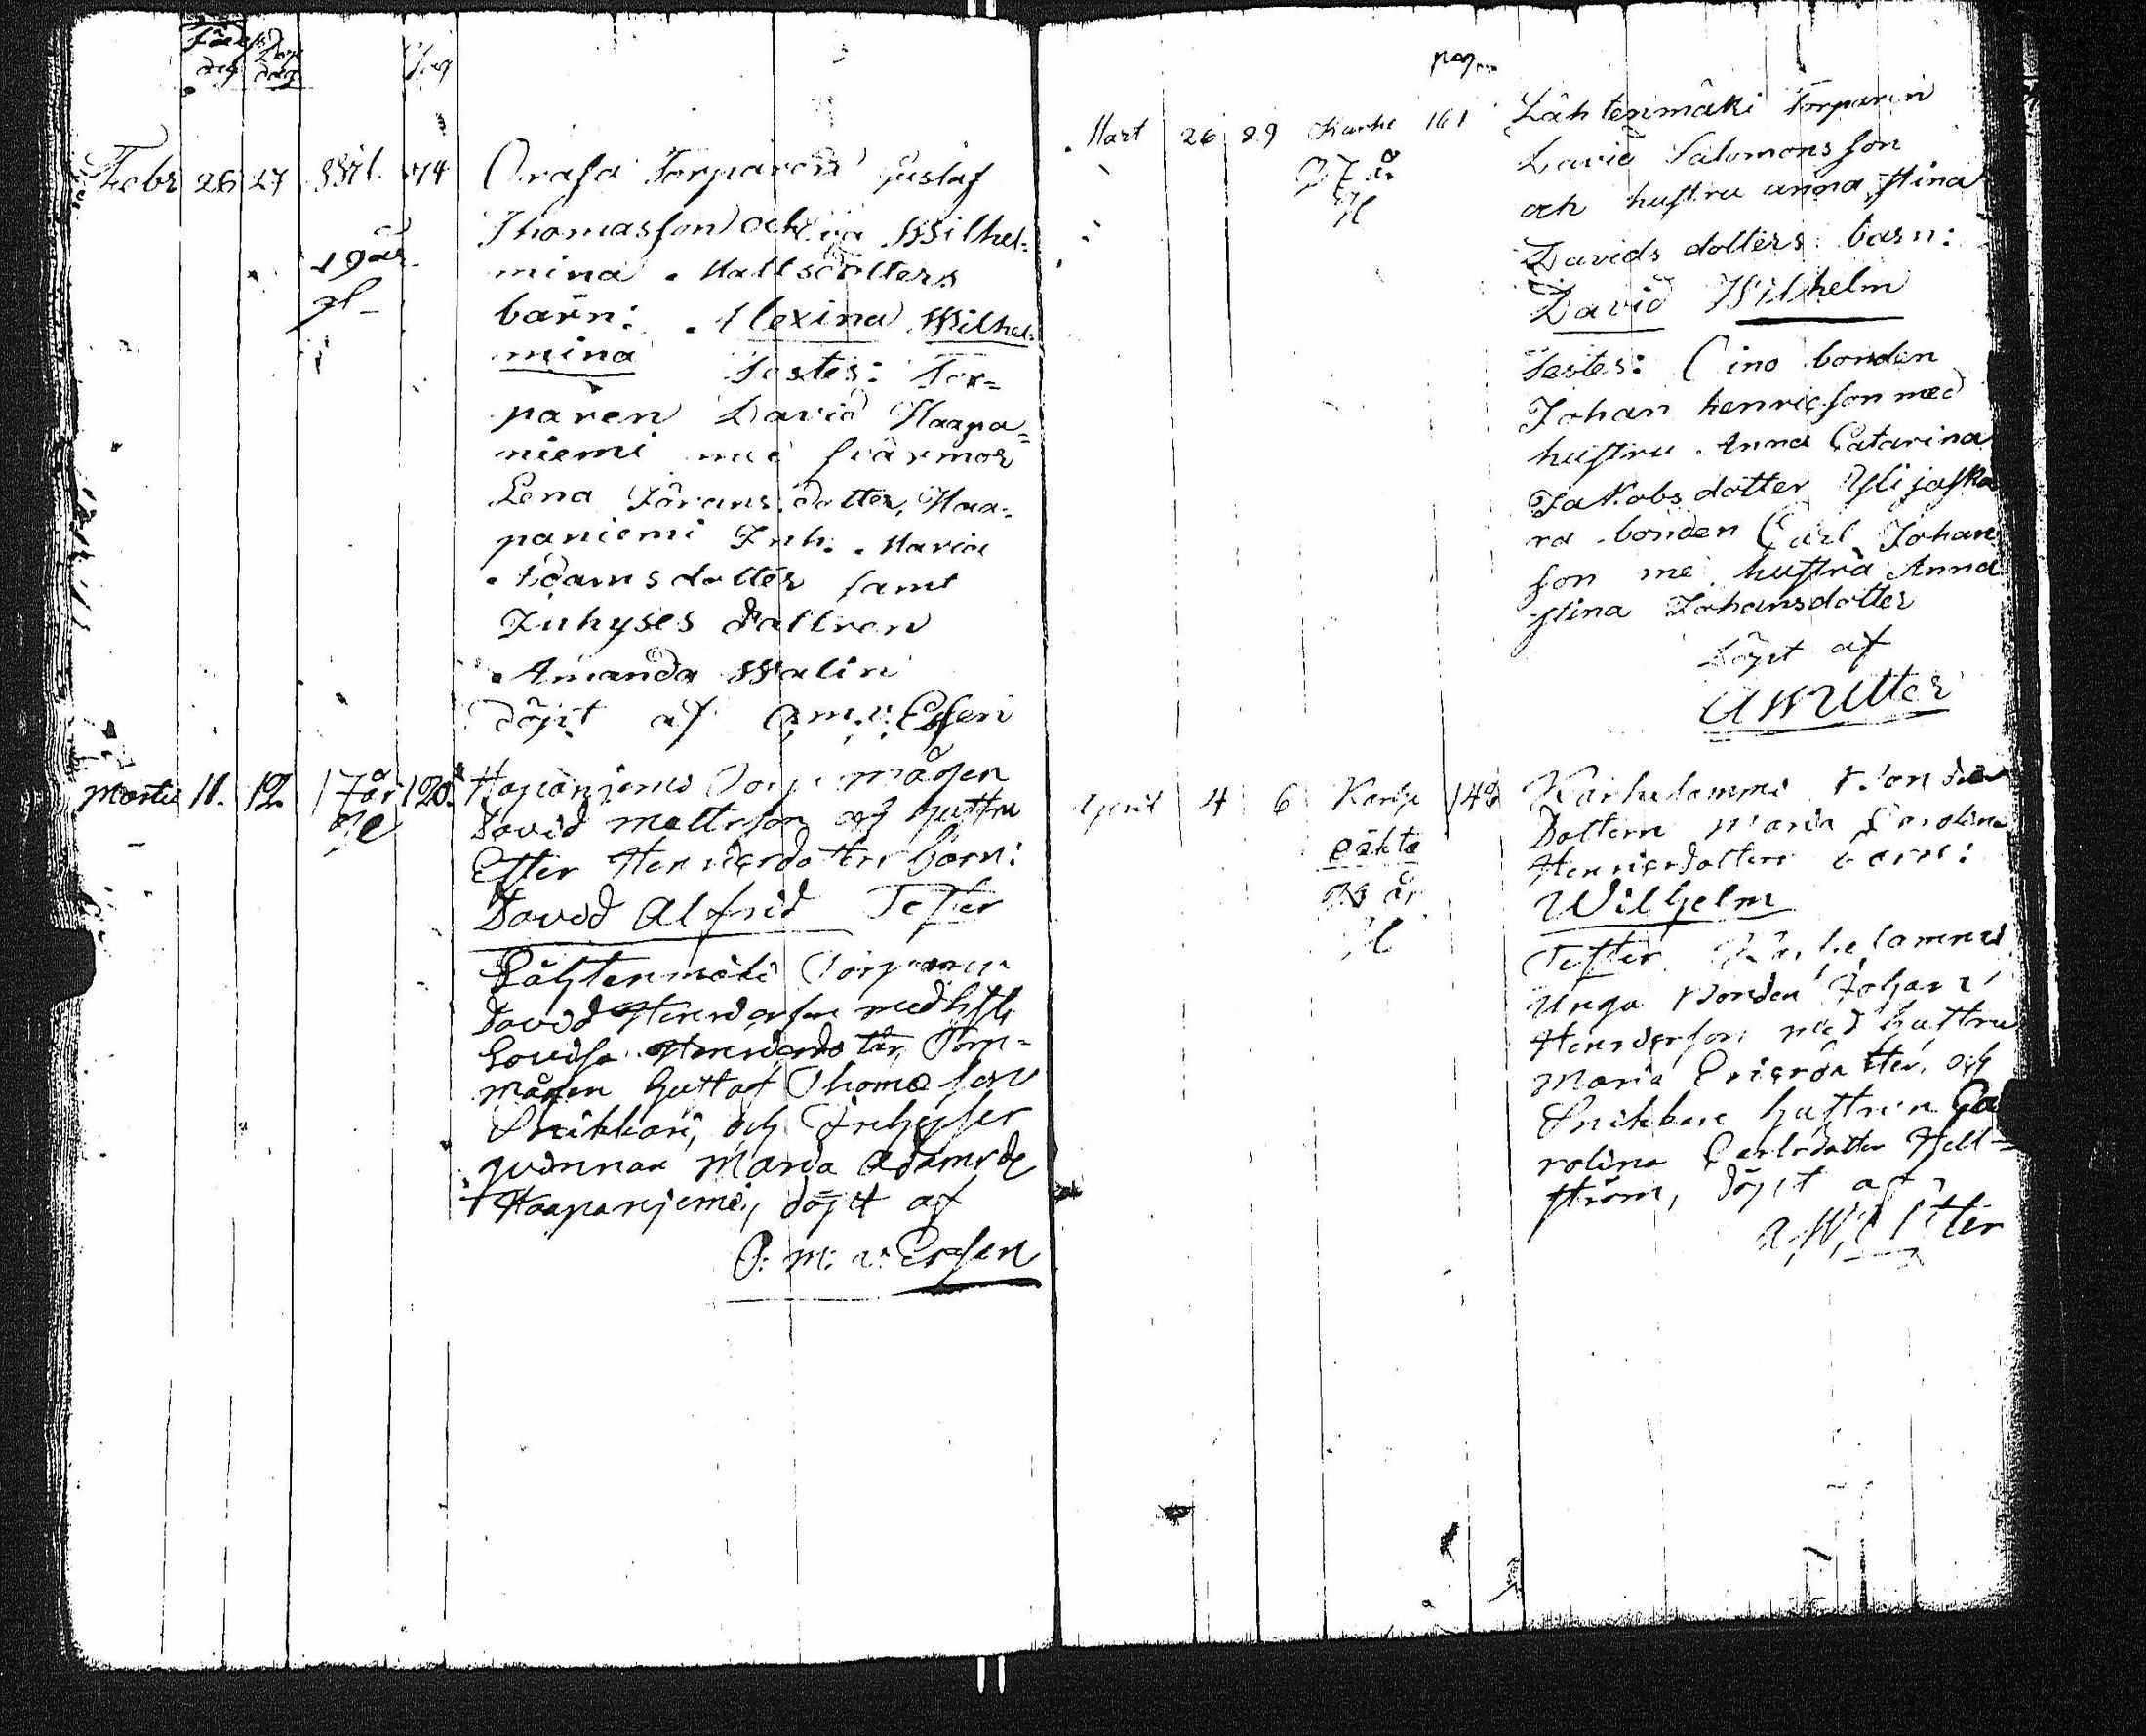 Föd. Döp. Pag
dag dag
Febr 26 27 74 Orafa Torparen Gustaf
Thomasson och Wilhel-
19 år. mina Mattsdotters
gl barn: Alexina Wilhel-
mina Testes: Tor-
paren David Haapa-
niemi med svärmor
Lena Göransdotter, Haa-
paniemi Inh. Maria
Adamsdotter samt
Inhyses dottren
Amanda Walin
döpt af O. m. v. Essen
Martii 11. 12. 17 år 120. Hapaniemi Torp mågen
gl David Mattsson och hustru
Ester Henricsdotters barn:
David Alfrid Tester
Lähtenmäki Torparen
David Henricsson med hst.
Lovisa Henricsdotter, Torp-
mågen Gustaf Thomasson
Snikkari, och Inhyses
qvinnan Maria Adamsdr
Haapanjemi, döpt af
O. M. v. Essen
pag.
Mart 26 29 161 Lähtenmäki Torparen
37 år David Salomonsson
gl och hustru Anna Stina
Davids dotters barn:
David Wilhelm
Testes: Eino bonden
Johan Henricson med
hustru Anna Catarina
Jakobsdotter Ylijaska
ra bonden Carl Johan
son me. hustru Anna
Stina Johansdotter
Döpt af
A W Utter
April 4 6 148 Karhulammi Bonde
oäkta Dottern Maria Carolina
år Henricsdotters barn:
gl Wilhelm
Tester Karhulammi
Unga Bonden Johan
Henricsson med hustru
Maria Ericsdotter, och
Snikkare hustrun Ca
rolina Carlsdotter Hell-
ström, döpt af
A. W. Utter